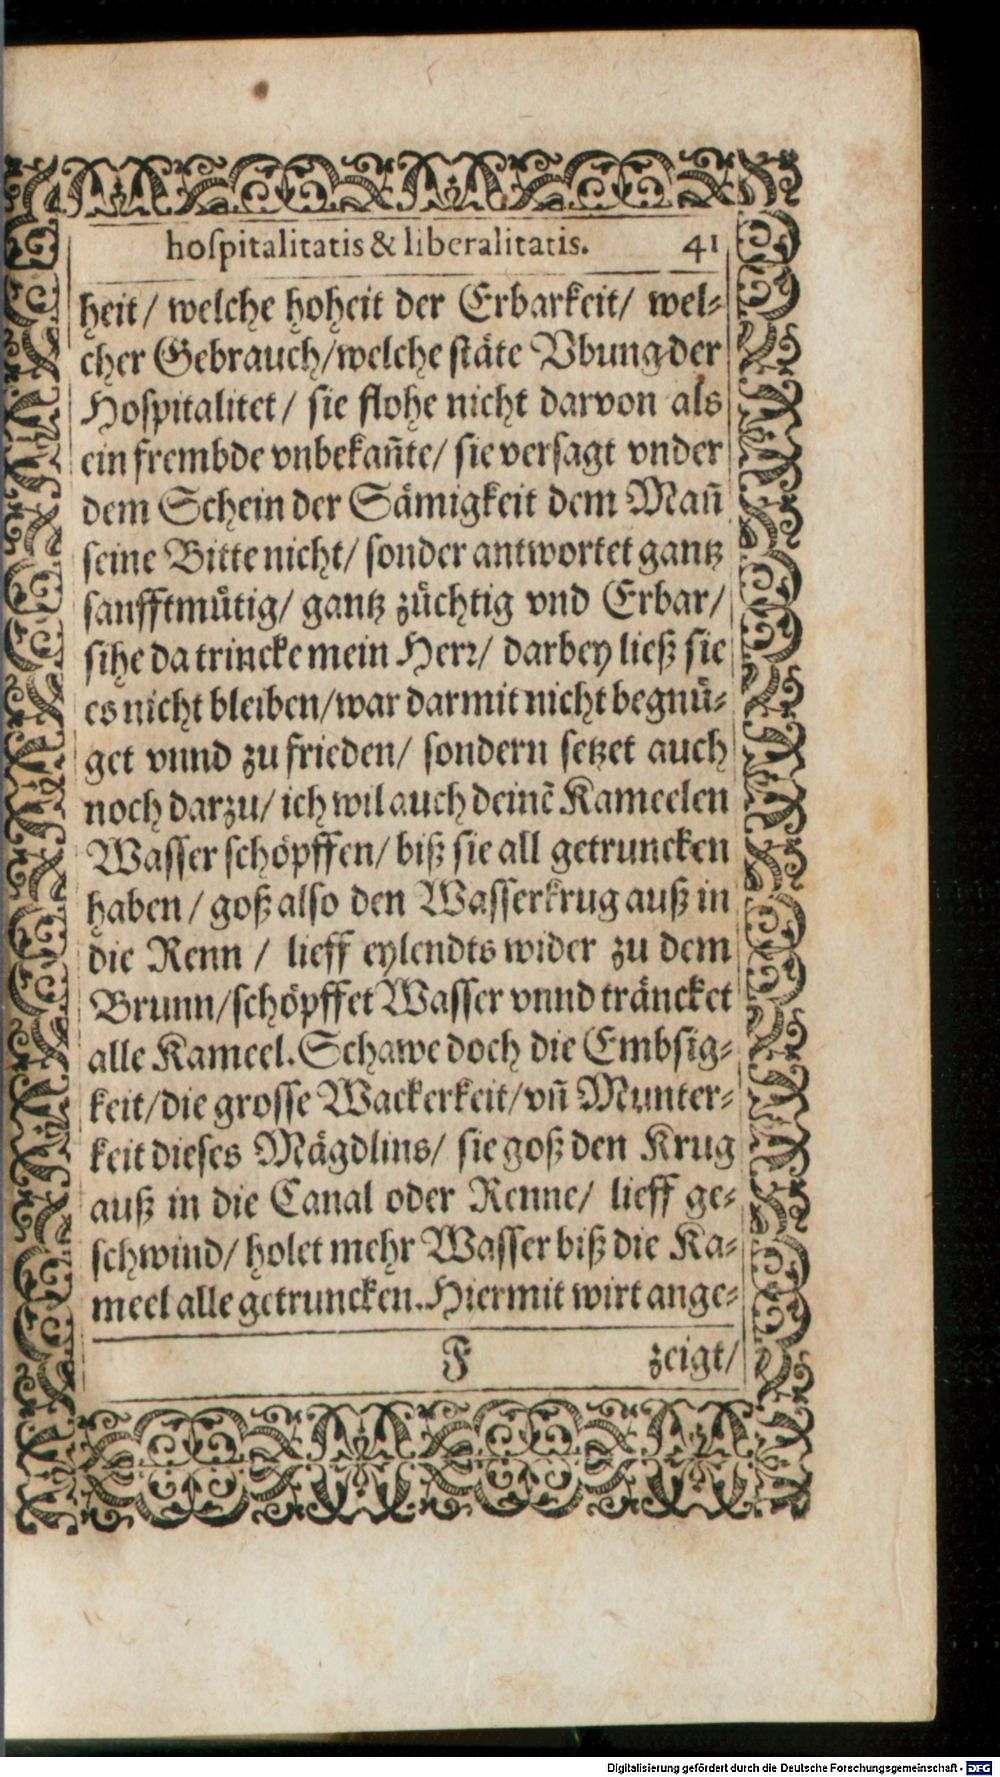 hospitalitatis & liberalitatis. 41
heit/ welche hoheit der Erbarkeit/ wel-
cher Gebrauch/welche stäte Vbung der
Hospitalitet/ sie flohe nicht darvon als
ein frembde vnbekañte/ sie versagt vnder
dem Schein der Sämigkeit dem Mañ
seine Bitte nicht/ sonder antwortet gantz
sanfftmütig/ gantz züchtig vnd Erbar/
sihe da trincke mein Herr/ darbey ließ sie
es nicht bleiben/war darmit nicht begnü-
get vnnd zu frieden/ sondern setzet auch
noch darzu/ ich wil auch deinẽ Kameelen
Wasser schöpffen/ biß sie all getruncken
haben/ goß also den Wasserkrug auß in
die Renn / lieff eylendts wider zu dem
Brunn/schöpffet Wasser vnnd träncket
alle Kameel. Schawe doch die Embsig-
keit/die grosse Wackerkeit/vñ Munter-
keit dieses Mägdlins/ sie goß den Krug
auß in die Canal oder Renne/ lieff ge-
schwind/ holet mehr Wasser biß die Ka-
meel alle getruncken. Hiermit wirt ange-
F zeigt/
Digitalisierung gefördert durch die Deutsche Forschungsgemeinschaft - DFG